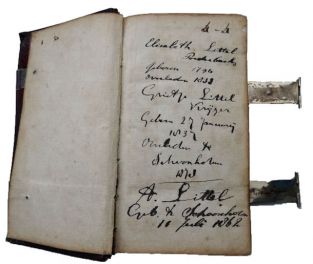 Elisabeth Littel
geboren 1796
overleden 1838
Grietje Littel
Krijger
Geboren 27 January
1837
Overleden te
Schoonholm
1873
A. Littel
Geb. te Schoonholm
10 Juli 1862